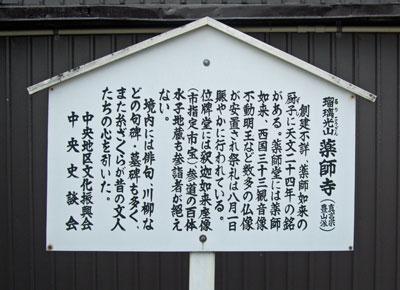 瑠璃光山 薬師寺 (真言宗 豊山派)
るりこうざん
創建不詳、薬師如来の
厨子に天文二十四年の銘
がある。薬師堂には薬師
如来、西国三十三観音像
不動明王など数多の仏像
が安置され祭礼は八月一日
賑やかに行われている。
位牌堂には釈迦如来座像
(市指定市宝)参道の百体
水子地蔵も参詣者が絶え
ない。
境内には俳句、川柳な
どの句碑・墓碑も多く、
また糸ざくらが昔の文人
たちの心を引いた。
中央地区文化振興会
中央史談会